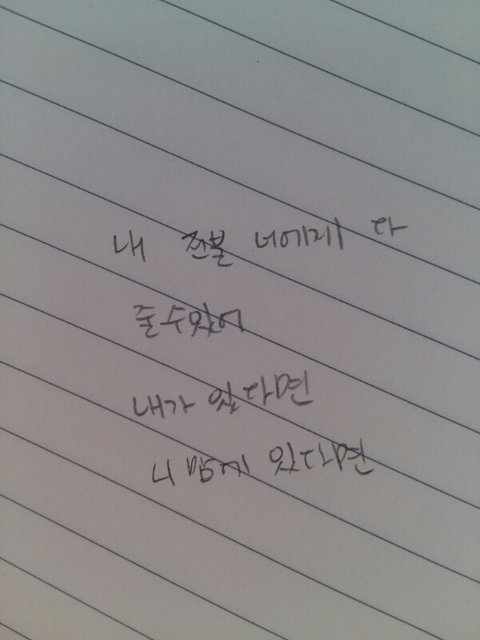 내 전불 너에게 다
줄수있어
내가 있다면
니 맘에 있다면